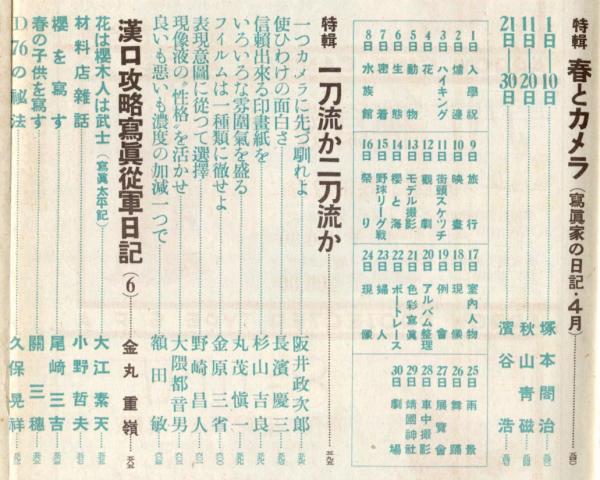 特輯 春とカメラ(寫眞家の日記・4月)
1日―10日 塚本閤治
11日―20日 秋山靑磁
21日―30日 濱谷浩
1日 入學祝
2日 爐邊
3日 ハイキング
4日 花
5日 動物
6日 生態
7日 密着
8日 水族館
9日 旅行
10日 映畫
11日 街頭スケッチ
12日 觀劇
13日 モデル撮影
14日 櫻と海
15日 野球リーグ戰
16日 祭り
17日 室內人物
18日 現像
19日 例會
20日 アルバム整理
21日 色彩寫眞
22日 ボートレース
23日 婦人
24日 現像
25日 雨景
26日 舞踊
27日 展覽會
28日 車中撮影
29日 靖國神社
30日 劇場
特輯 一刀流か二刀流か
一つカメラに先づ馴れよ 阪井政次郎
使ひわけの面白さ 長濱慶三
信賴出來る印畫紙を 杉山吉良
いろいろな雰圍氣を盛る 丸茂愼一
フイルムは一種類に徹せよ 金原三省
表現意圖に從つて選擇 野崎昌人
現像液の"性格"を活かせ 大隈都音男
良いも悪いも濃度の加減一つで 額田敏
漢口攻略寫眞從軍日記(6) 金丸重嶺
花は櫻木人は武士(寫眞太平記) 大江素天
材料店雜話 小野哲夫
櫻を寫す 尾崎三吉
春の子供を寫す 關三穗
D76の祕法 久保晃祥